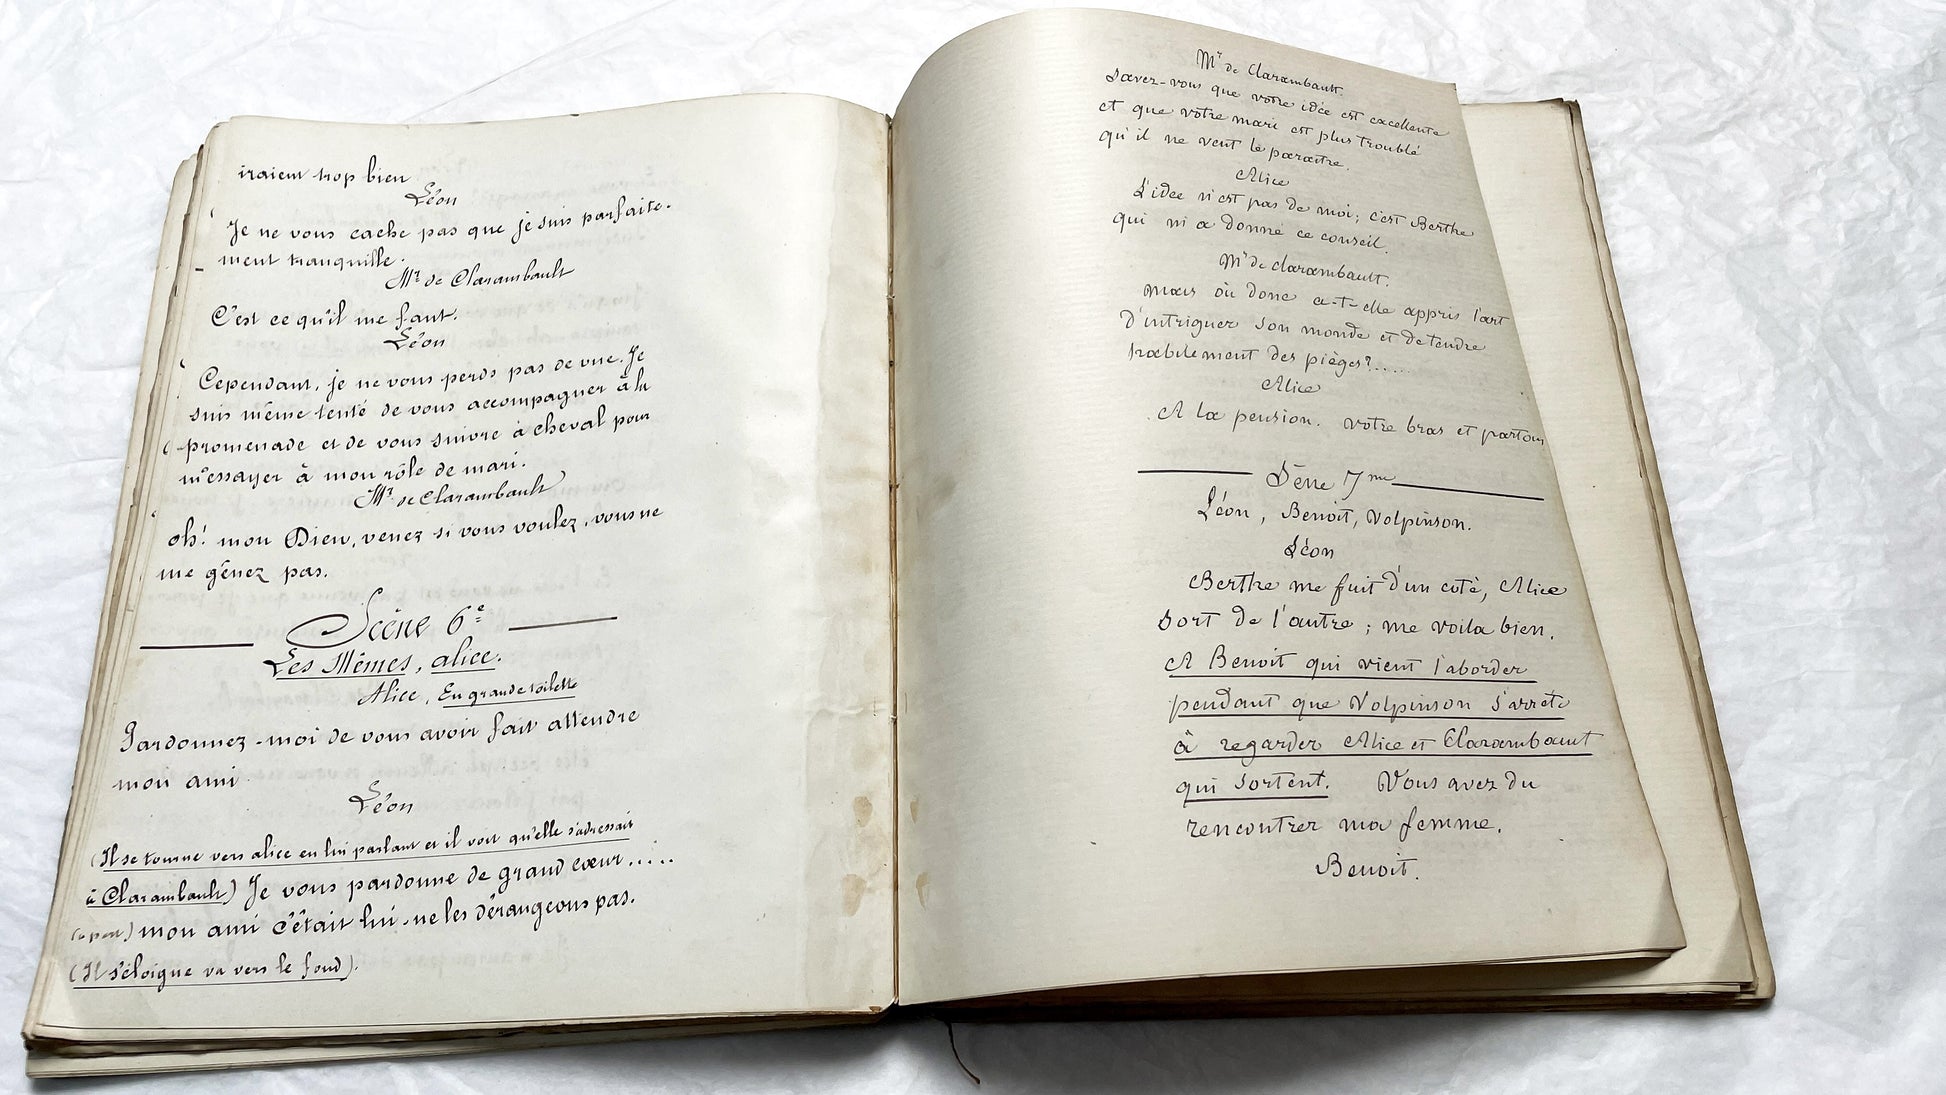 iraient trop bien
Léon
Je ne vous cache pas que je suis parfaite-
ment tranquille.
Mr de Clarambault
C'est ce qu'il me faut.
Léon
Cependant, je ne vous perds pas de vue. Je
suis même tenté de vous accompagner à la
promenade et de vous suivre à cheval pour
m'essayer à mon rôle de mari.
Mr de Clarambault
oh! mon Dieu, venez si vous voulez, vous ne
me gênez pas.
Scène 6e
Les Mêmes, alice.
Alice, En grande toilette
Pardonnez-moi de vous avoir fait attendre
mon ami
Léon
(Il se tourne vers alice en lui parlant et il voit qu'elle s'adressait
à Clarambault) Je vous pardonne de grand cœur.....
(à part) mon ami c'était lui - ne les dérangeons pas.
(Il s'éloigne va vers le fond).
Mr de Clarambault.
Savez-vous que votre idée est excellente
et que votre mari est plus troublé
qu'il ne veut le paraître.
Alice
L'idée n'est pas de moi; c'est Berthe
qui m'a donné ce conseil.
Mr de clarambault.
mais où donc a-t-elle appris l'art
d'intriguer son monde et de tendre
habilement des pièges?......
Alice
A la pension. votre bras et partons
Sène 7me
Léon, Benoit, Volpinson.
Léon
Berthe me fuit d'un coté, Alice
sort de l'autre; me voila bien.
A Benoit qui vient l'aborder
pendant que Volpinson s'arrete
à regarder Alice et Clarambault
qui sortent. Vous avez du
rencontrer ma femme.
Benoit.